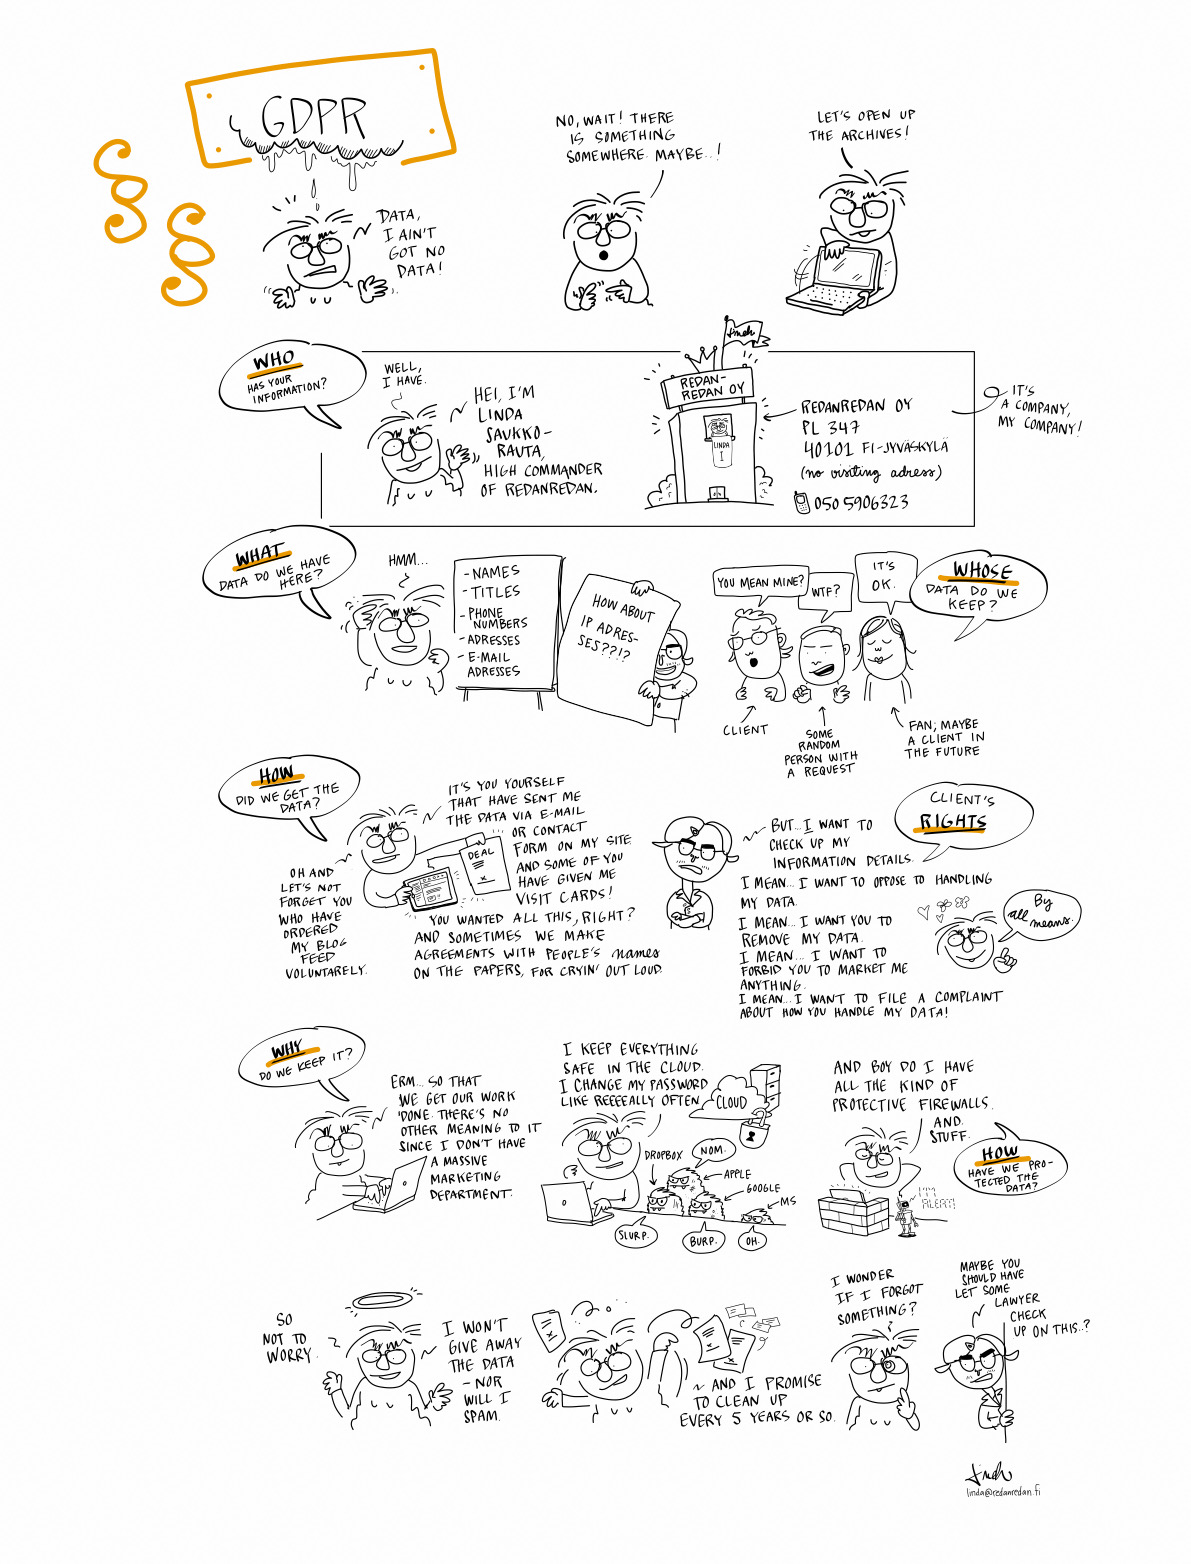 GDPR
DATA,
I AIN'T
GOT NO
DATA!
NO, WAIT! THERE
IS SOMETHING
SOMEWHERE. MAYBE..!
LET'S OPEN UP
THE ARCHIVES!
WHO
HAS YOUR
INFORMATION?
WELL,
I HAVE.
HEI, I'M
LINDA
SAUKKO-
RAUTA,
HIGH COMMANDER
OF REDANREDAN.
REDAN-
REDAN OY
LINDA
I
REDANREDAN OY
PL 347
40101 FI-JYVÄSKYLÄ
(no visiting adress)
050 5906323
IT'S
A COMPANY,
MY COMPANY!
WHAT
DATA DO WE HAVE
HERE?
HMM...
-NAMES
-TITLES
-PHONE
NUMBERS
-ADRESSES
-E-MAIL
ADRESSES
HOW ABOUT
IP ADRES-
SES??!?
YOU MEAN MINE?
WTF?
IT'S
OK.
WHOSE
DATA DO WE
KEEP?
CLIENT
SOME
RANDOM
PERSON WITH
A REQUEST
FAN; MAYBE
A CLIENT IN
THE FUTURE
HOW
DID WE GET THE
DATA?
IT'S YOU YOURSELF
THAT HAVE SENT ME
THE DATA VIA E-MAIL
OR CONTACT
FORM ON MY SITE
AND SOME OF YOU
HAVE GIVEN ME
VISIT CARDS!
DEAL
x
OH AND
LET'S NOT
FORGET YOU
WHO HAVE
ORDERED
MY BLOG
FEED
VOLUNTARELY.
YOU WANTED ALL THIS, RIGHT?
AND SOMETIMES WE MAKE
AGREEMENTS WITH PEOPLE'S names
ON THE PAPERS, FOR CRYIN' OUT LOUD.
CLIENT'S
RIGHTS
BUT... I WANT TO
CHECK UP MY
INFORMATION DETAILS.
I MEAN... I WANT TO OPPOSE TO HANDLING
MY DATA.
I MEAN... I WANT YOU TO
REMOVE MY DATA.
I MEAN... I WANT TO
FORBID YOU TO MARKET ME
ANYTHING.
I MEAN...I WANT TO FILE A COMPLAINT
ABOUT HOW YOU HANDLE MY DATA!
By
all
means.
WHY
DO WE KEEP IT?
ERM... SO THAT
WE GET OUR WORK
DONE. THERE'S NO
OTHER MEANING TO IT
SINCE I DON'T HAVE
A MASSIVE
MARKETING
DEPARTMENT.
I KEEP EVERYTHING
SAFE IN THE CLOUD.
I CHANGE MY PASSWORD
LIKE REEEEALLY OFTEN.
CLOUD
DROPBOX
NOM.
APPLE
GOOGLE
MS
SLURP.
BURP.
OH.
AND BOY DO I HAVE
ALL THE KIND OF
PROTECTIVE FIREWALLS.
AND.
STUFF.
HOW
HAVE WE PRO-
TECTED THE
DATA?
I'M
ALERT!
SO
NOT TO
WORRY.
I WON'T
GIVE AWAY
THE DATA
-NOR
WILL I
SPAM.
~ AND I PROMISE
TO CLEAN UP
EVERY 5 YEARS OR SO.
I WONDER
IF I FORGOT
SOMETHING?
MAYBE YOU
SHOULD HAVE
LET SOME
LAWYER
CHECK
UP ON THIS..?
linda@redanredan.fi